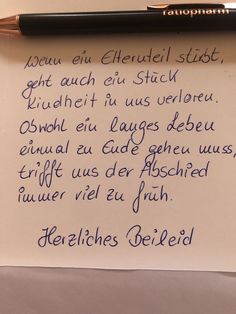 ratiopharm
Wenn ein Elternteil stirbt,
geht auch ein Stück
Kindheit in uns verloren.
Obwohl ein langes Leben
einmal zu Ende gehen muss,
trifft uns der Abschied
immer viel zu früh.
Herzliches Beileid